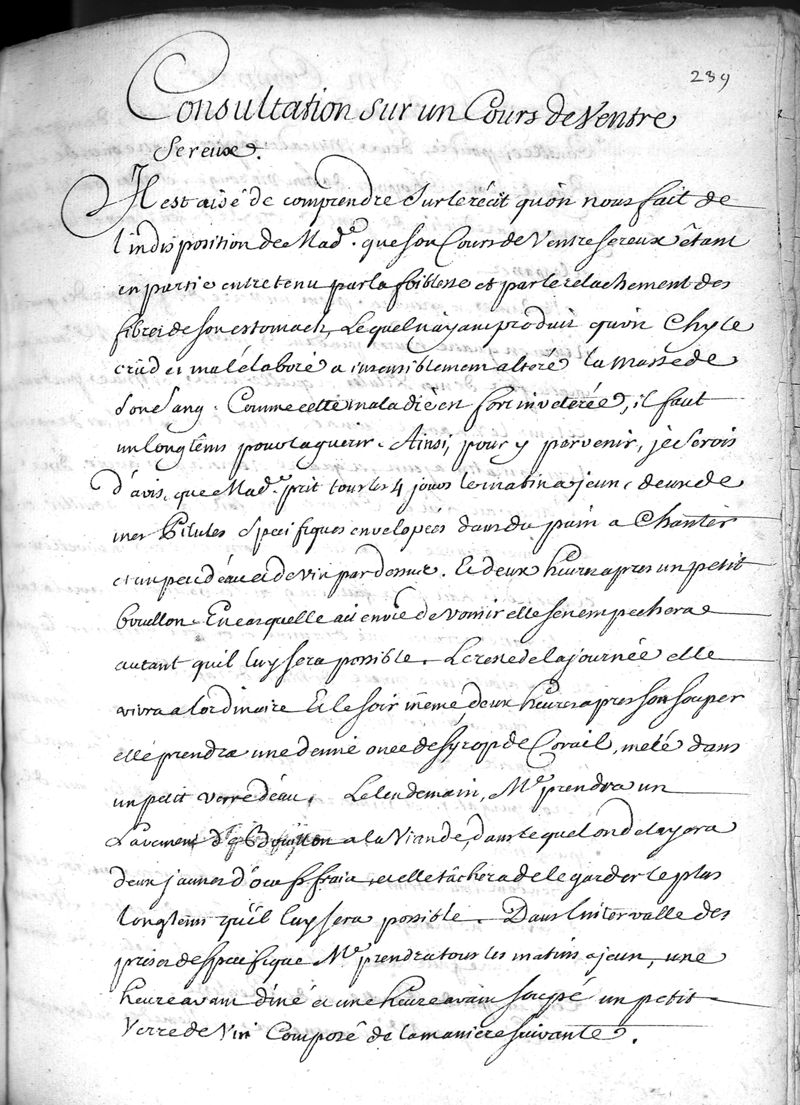 239
Consultation sur un Cours de Ventre
Sereux.
Il est aisé de comprendre sur le récit qu'on nous fait de
l'indisposition de Mad.e que son Cours de Ventre sereux étant
en partie entretenu par la foiblesse et par le relachement des
fibres de son estomach, Lequel n'ayant produit qu'un Chyle
crud et mal élaboré a insensiblement altéré la masse de
son Sang. Comme cette maladie est fort inveterée, il faut
un long tems pour la guerir. Ainsi, pour y parvenir, je serois
d'avis, que Mad.e prit tous les 4 jours le matin a jeun, deux de
mes Pilules Specifiques envelopées dans du pain a Chanter
et un peu d'eau et de vin par dessus. Et deux heures apres un petit
bouillon. En cas qu'elle ait envie de vomir elle s'en empechera
autant qu'il luy sera possible. Le reste de la journée elle
vivra a l'ordinaire Et le soir même, deux heures apres son souper
elle prendra une demie once de syrop de Corail, melé dans
un petit verre d'eau. Le lendemain, M.e prendra un
Lavement de Bouillon a la Viande, dans lequel on delayera
deux jaunes d'oeufs frais, et elle tâchera de le garder le plus
longtems qu'il luy sera possible. Dans l'intervalle des
prises de specifique M.e prendra tous les matins a jeun, une
heure avant diné et une heure avant soupé un petit
Verre de Vin Composé de la maniere suivante.